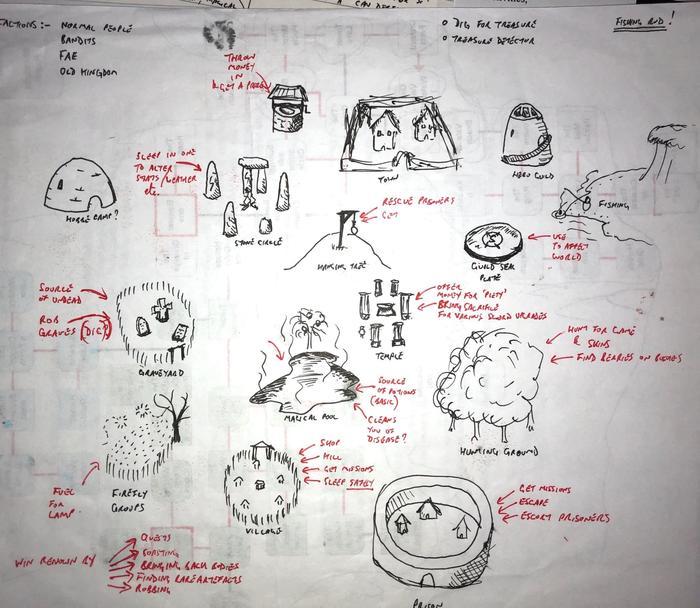 FACTIONS :- NORMAL PEOPLE
BANDITS
FAE
OLD KINGDOM
O DIG FOR TREASURE
O TREASURE DETECTOR
FISHING ROD!
THROW
MONEY
IN
& GET A PRIZE
TOWN
HERO GUILD
SLEEP IN ONE
TO ALTER
STATS/WEATHER
etc.
STONE CIRCLE
HOBBE CAMP?
FISHING
RESCUE PRISONERS
HANGING TREE
GUILD SEAL
PLATE
USE
TO AFFECT
WORLD
SOURCE
OF UNDEAD
ROB
GRAVES (DIG?)
GRAVEYARD
OFFER
MONEY FOR 'PIETY'
BRING SACRIFICE
FOR VARIOUS SWORD UPGRADES
TEMPLE
HUNT FOR GAME
& SKINS
FIND BERRIES ON BUSHES
HUNTING GROUND
SOURCE
OF POTIONS
(BASIC)
CLEANS
YOU OF
DISEASE?
MAGICAL POOL
FUEL
FOR
LAMP.
FIREFLY
GROUPS
SHOP
KILL
GET MISSIONS
SLEEP SAFELY
VILLAGE
GET MISSIONS
ESCAPE
ESCORT PRISONERS
PRISON
WIN RENOWN BY
QUESTS
BOASTING
BRINGING BACK BODIES
FINDING RARE ARTEFACTS
ROBBING